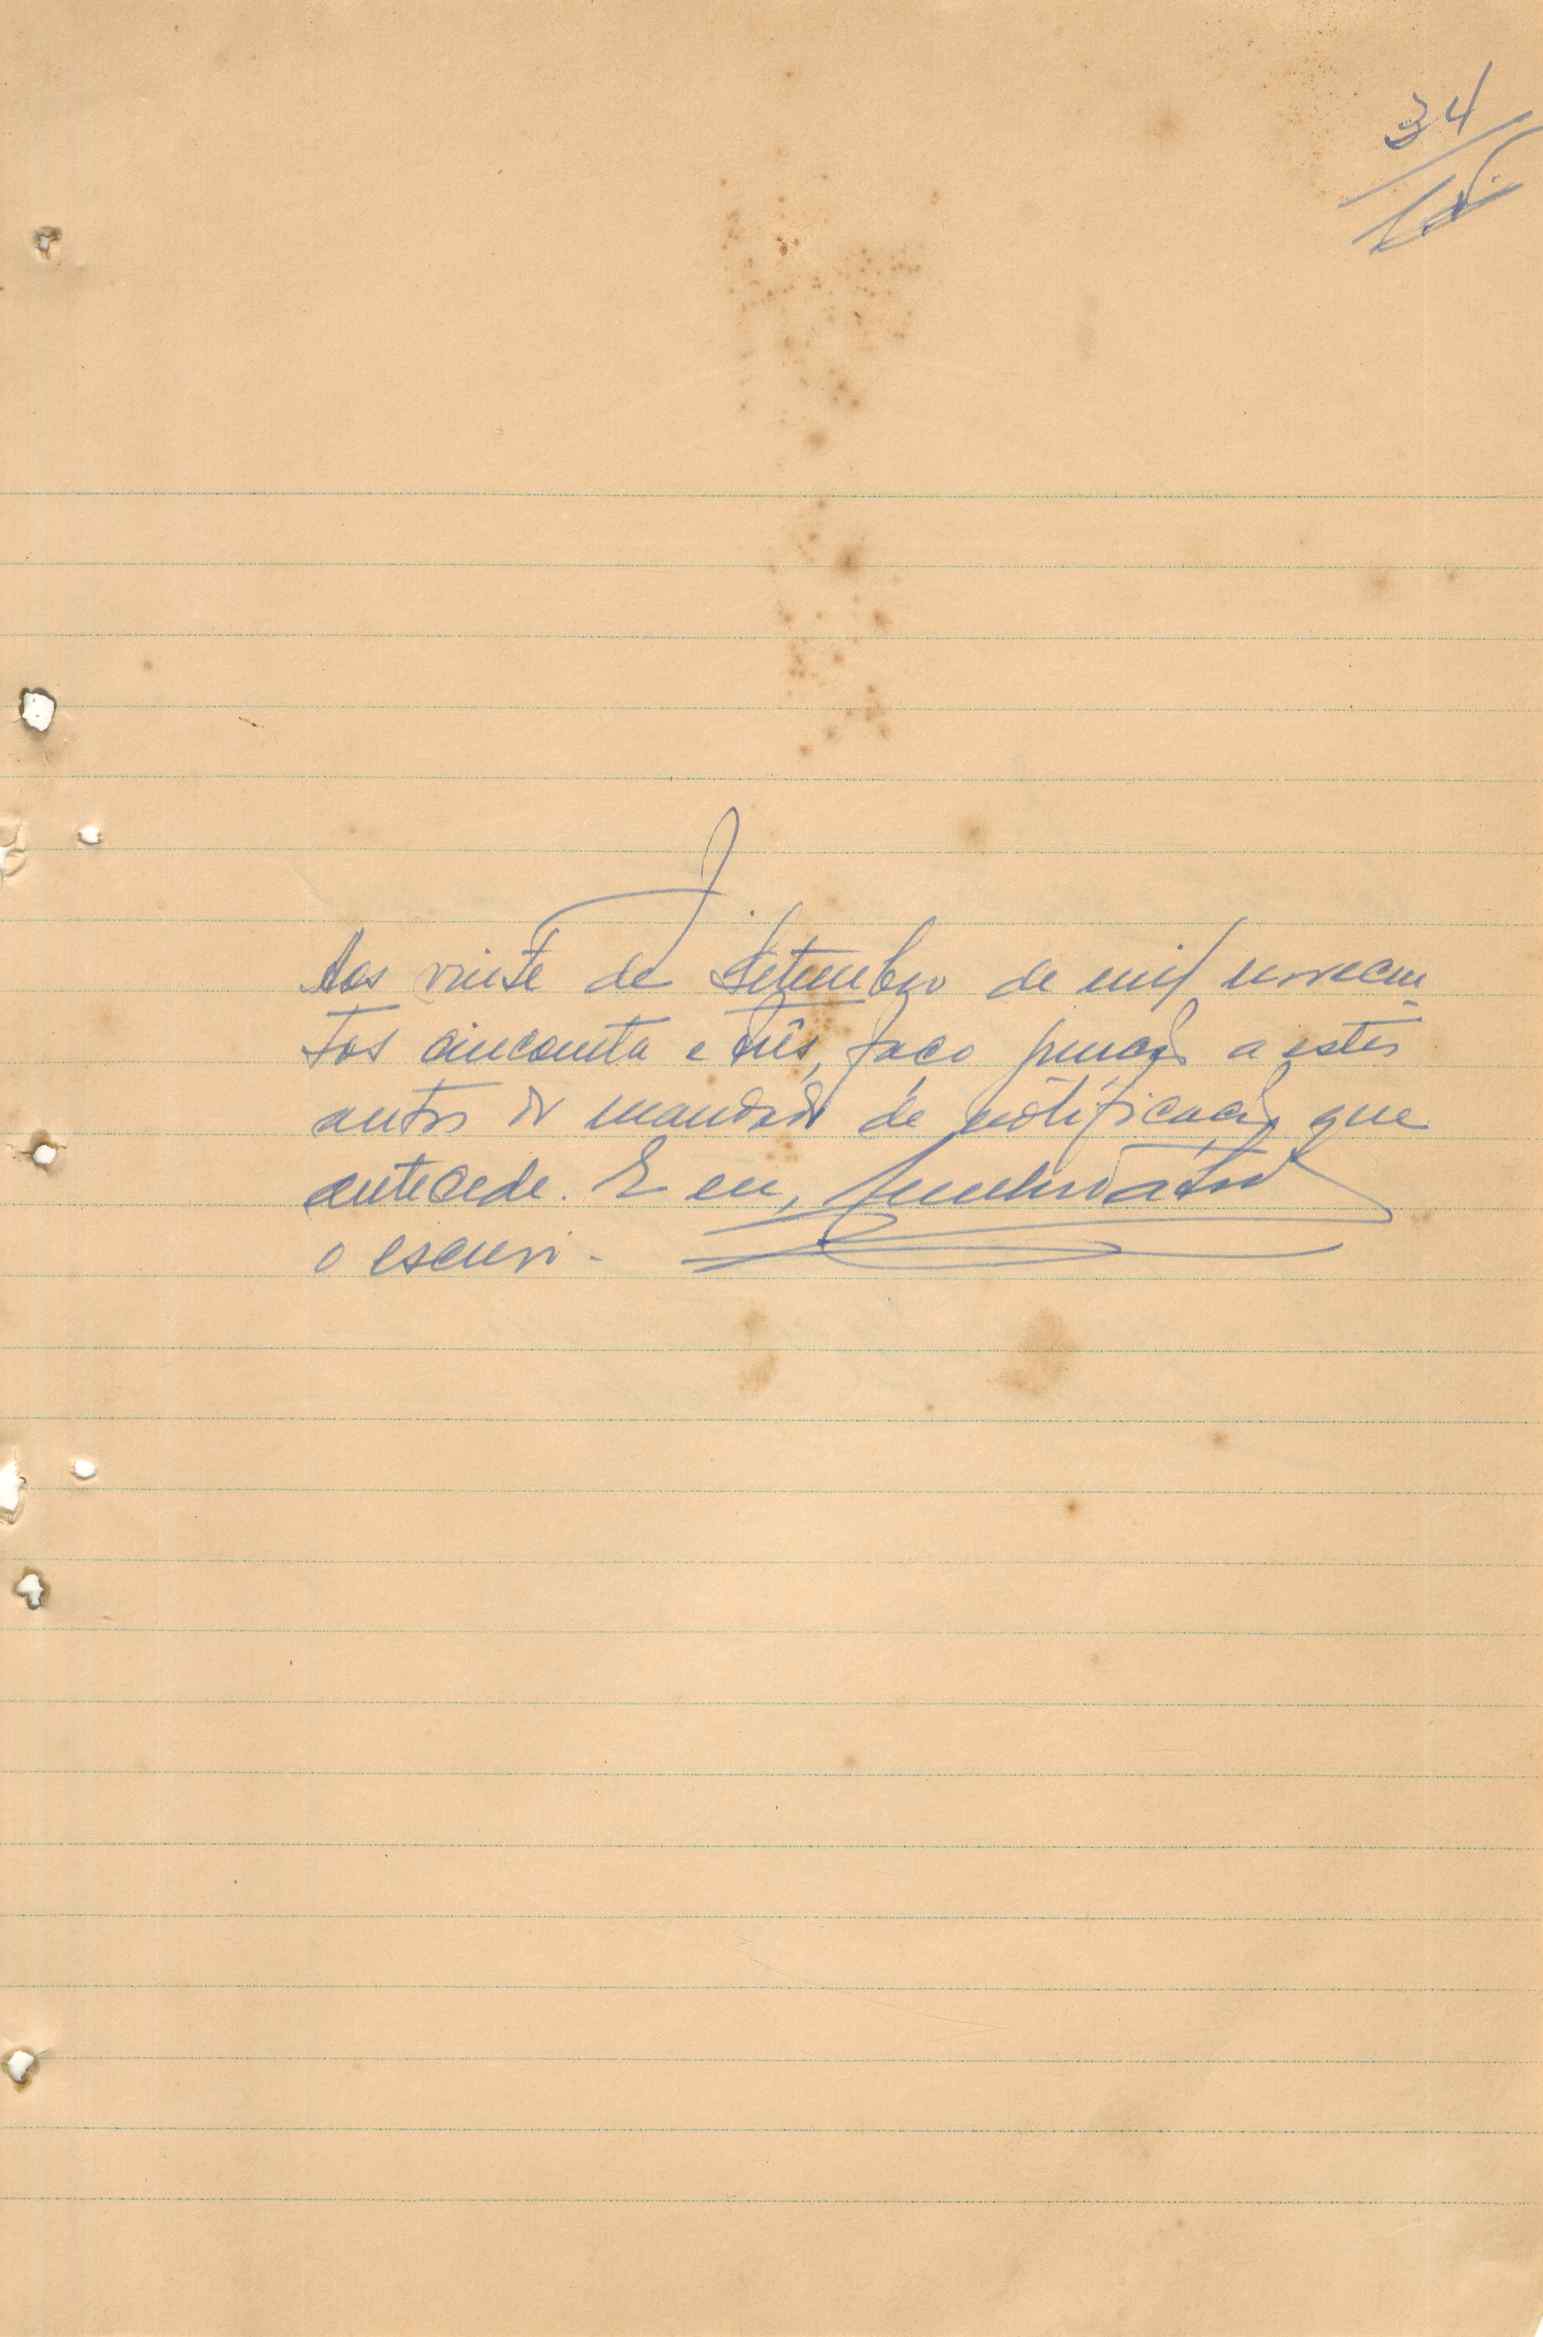 34
J.
Aos vinte de Setembro de mil novecen
tos cincoenta e três, faço junção a estes
autos do mandado de notificação que
antecede. E eu,
o escrevi.